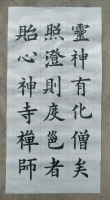 靈神有化僧矣
照澄則度邕者
貽心神寺禪師